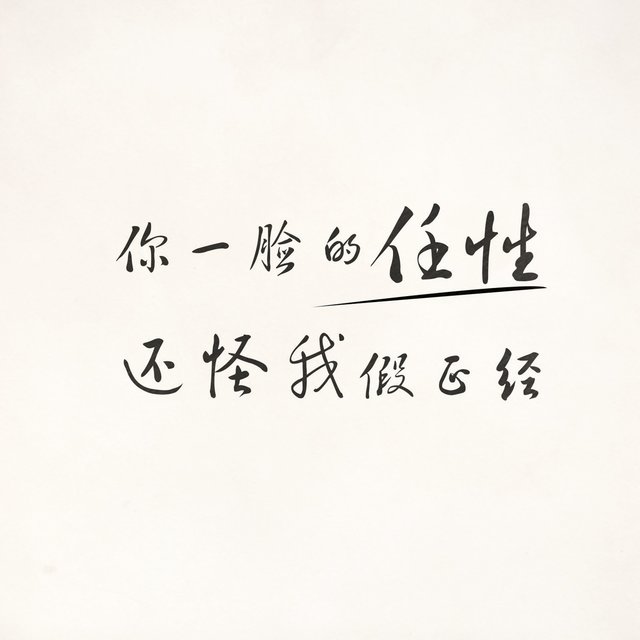 你一脸的任性
还怪我假正经